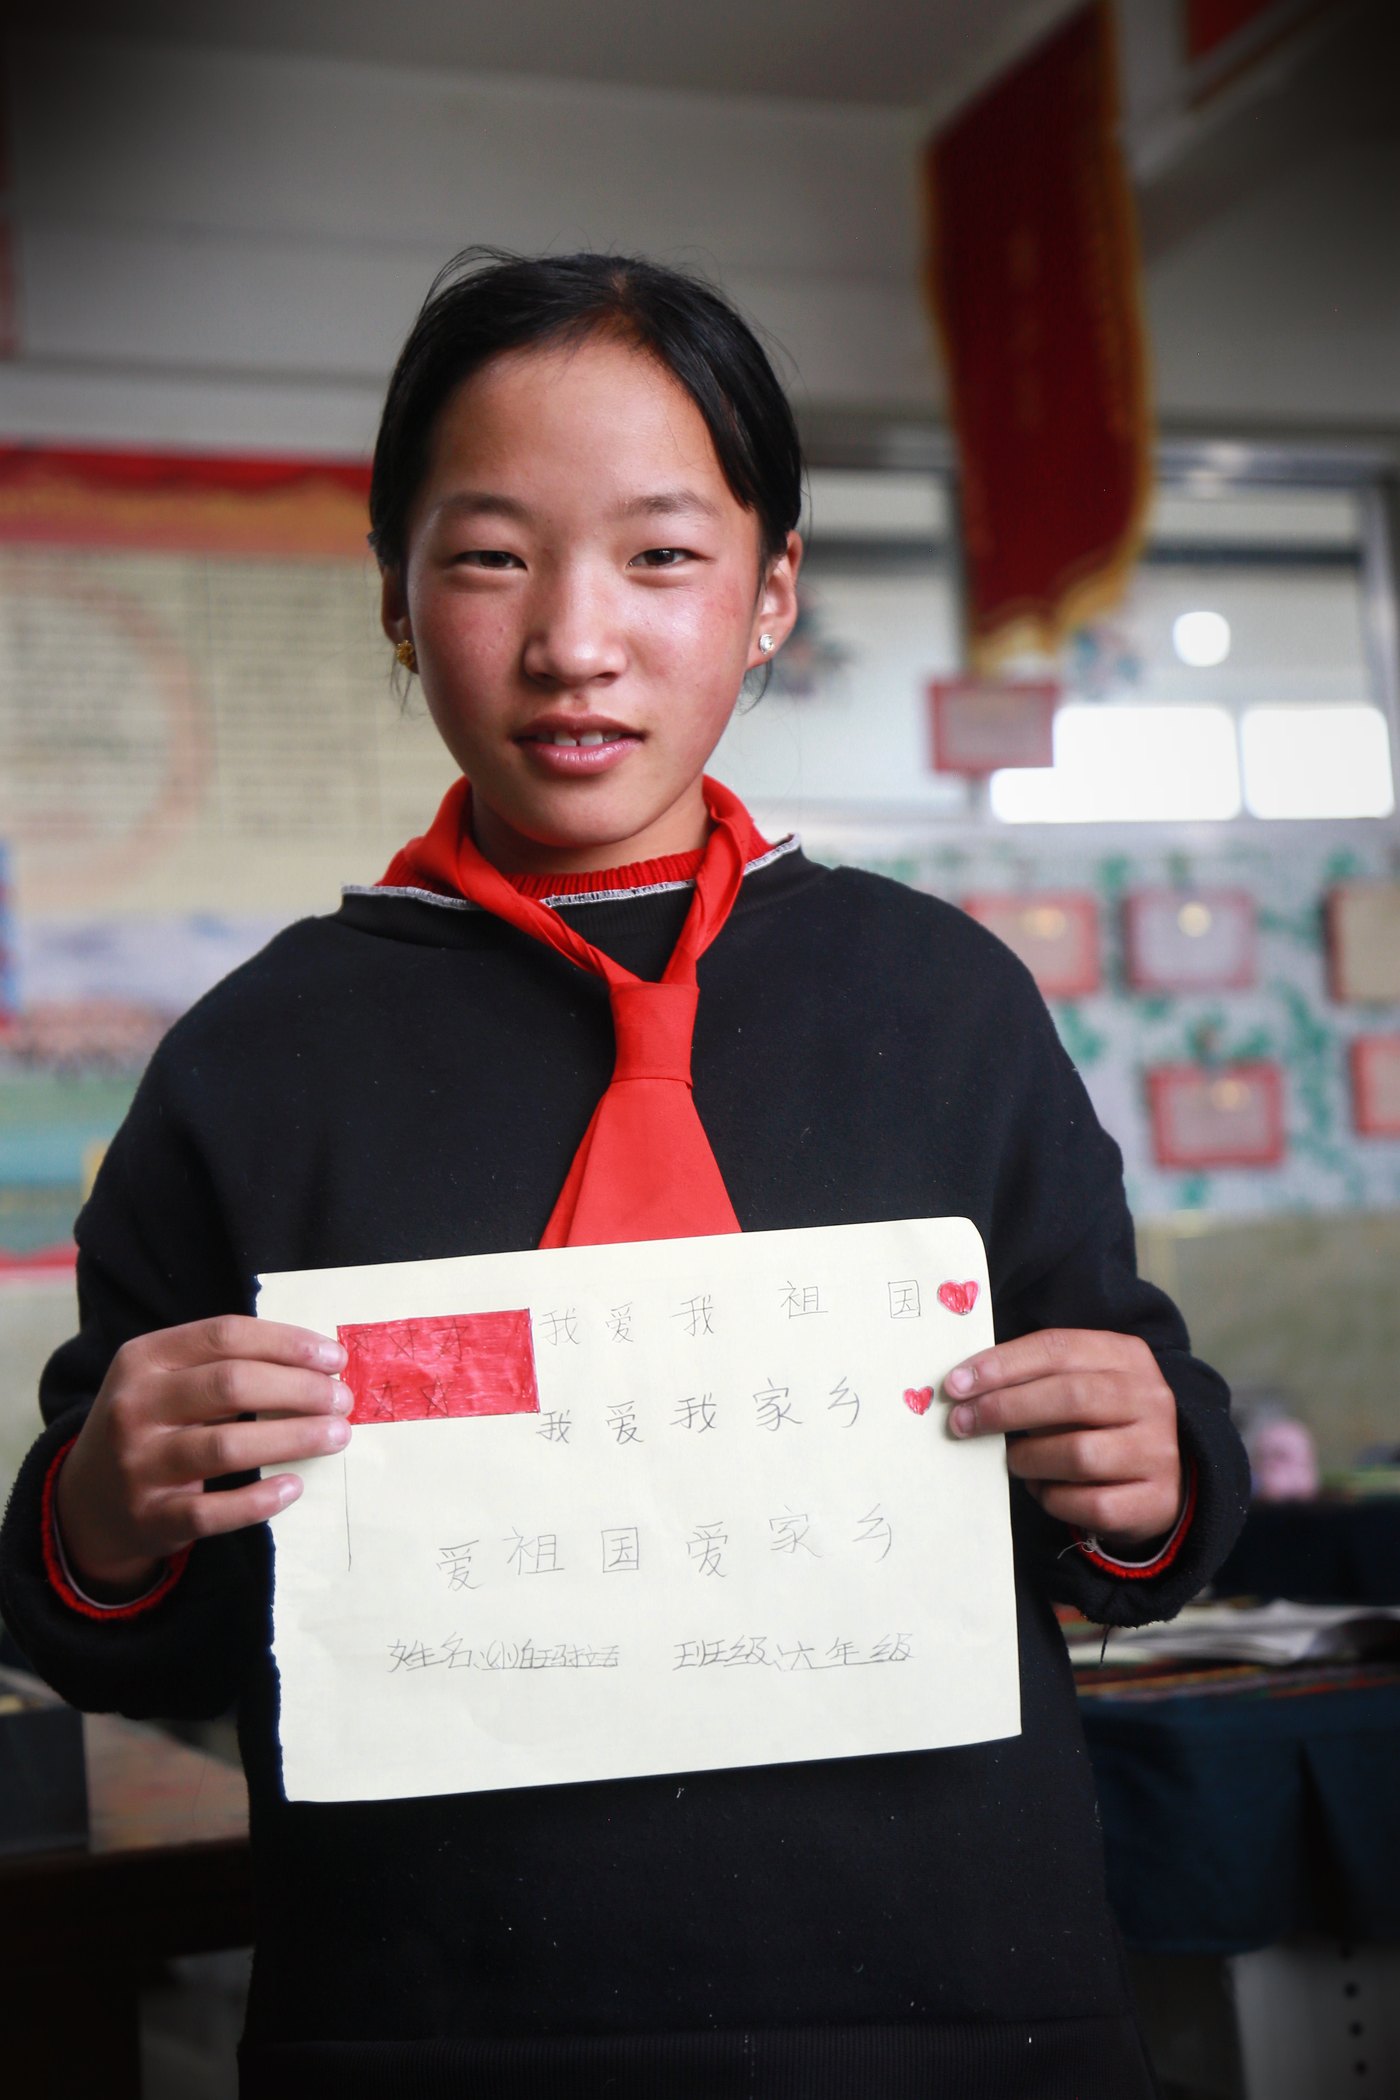 我爱我祖国
我爱我家乡
爱祖国爱家乡
姓名: 班级: 六年级